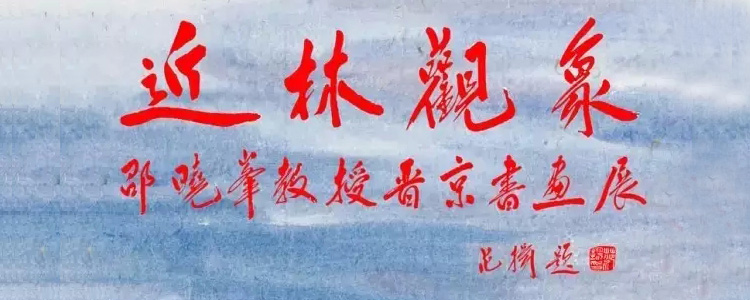 近林觀象
邵曉峯教授晋京書畫展
范扬題